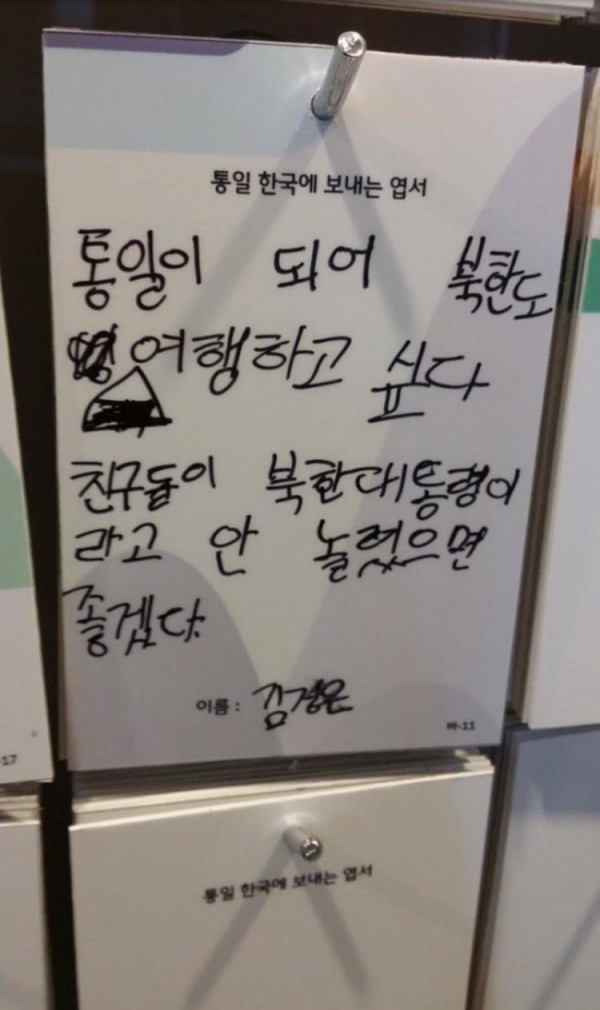 통일 한국에 보내는 엽서
통일이 되어 북한도
여행하고 싶다
친구들이 북한대통령이
라고 안 놀렸으면
좋겠다
이름 : 김경은
바-11
-17
통일 한국에 보내는 엽서